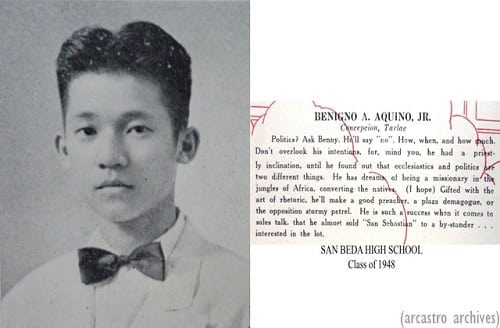 BENIGNO A. AQUINO, JR.
Concepcion, Tarlac
Politics? Ask Benny. He'll say "no", How, when, and how much.
Don't overlook his intentions, for, mind you, he had a priest-
ly inclination, until he found out that ecclesiastics and politics are
two different things. He has dreams of being a missionary in the
jungles of Africa, converting the natives. (I hope) Gifted with the
art of rhetoric, he'll make a good preacher, a plaza demagogue, or
the opposition stormy petrel. He is such a success when it comes to
sales talk, that he almost sold "San Sebastian" to a by-stander . . .
interested in the lot.
SAN BEDA HIGH SCHOOL
Class of 1948
(arcastro archives)